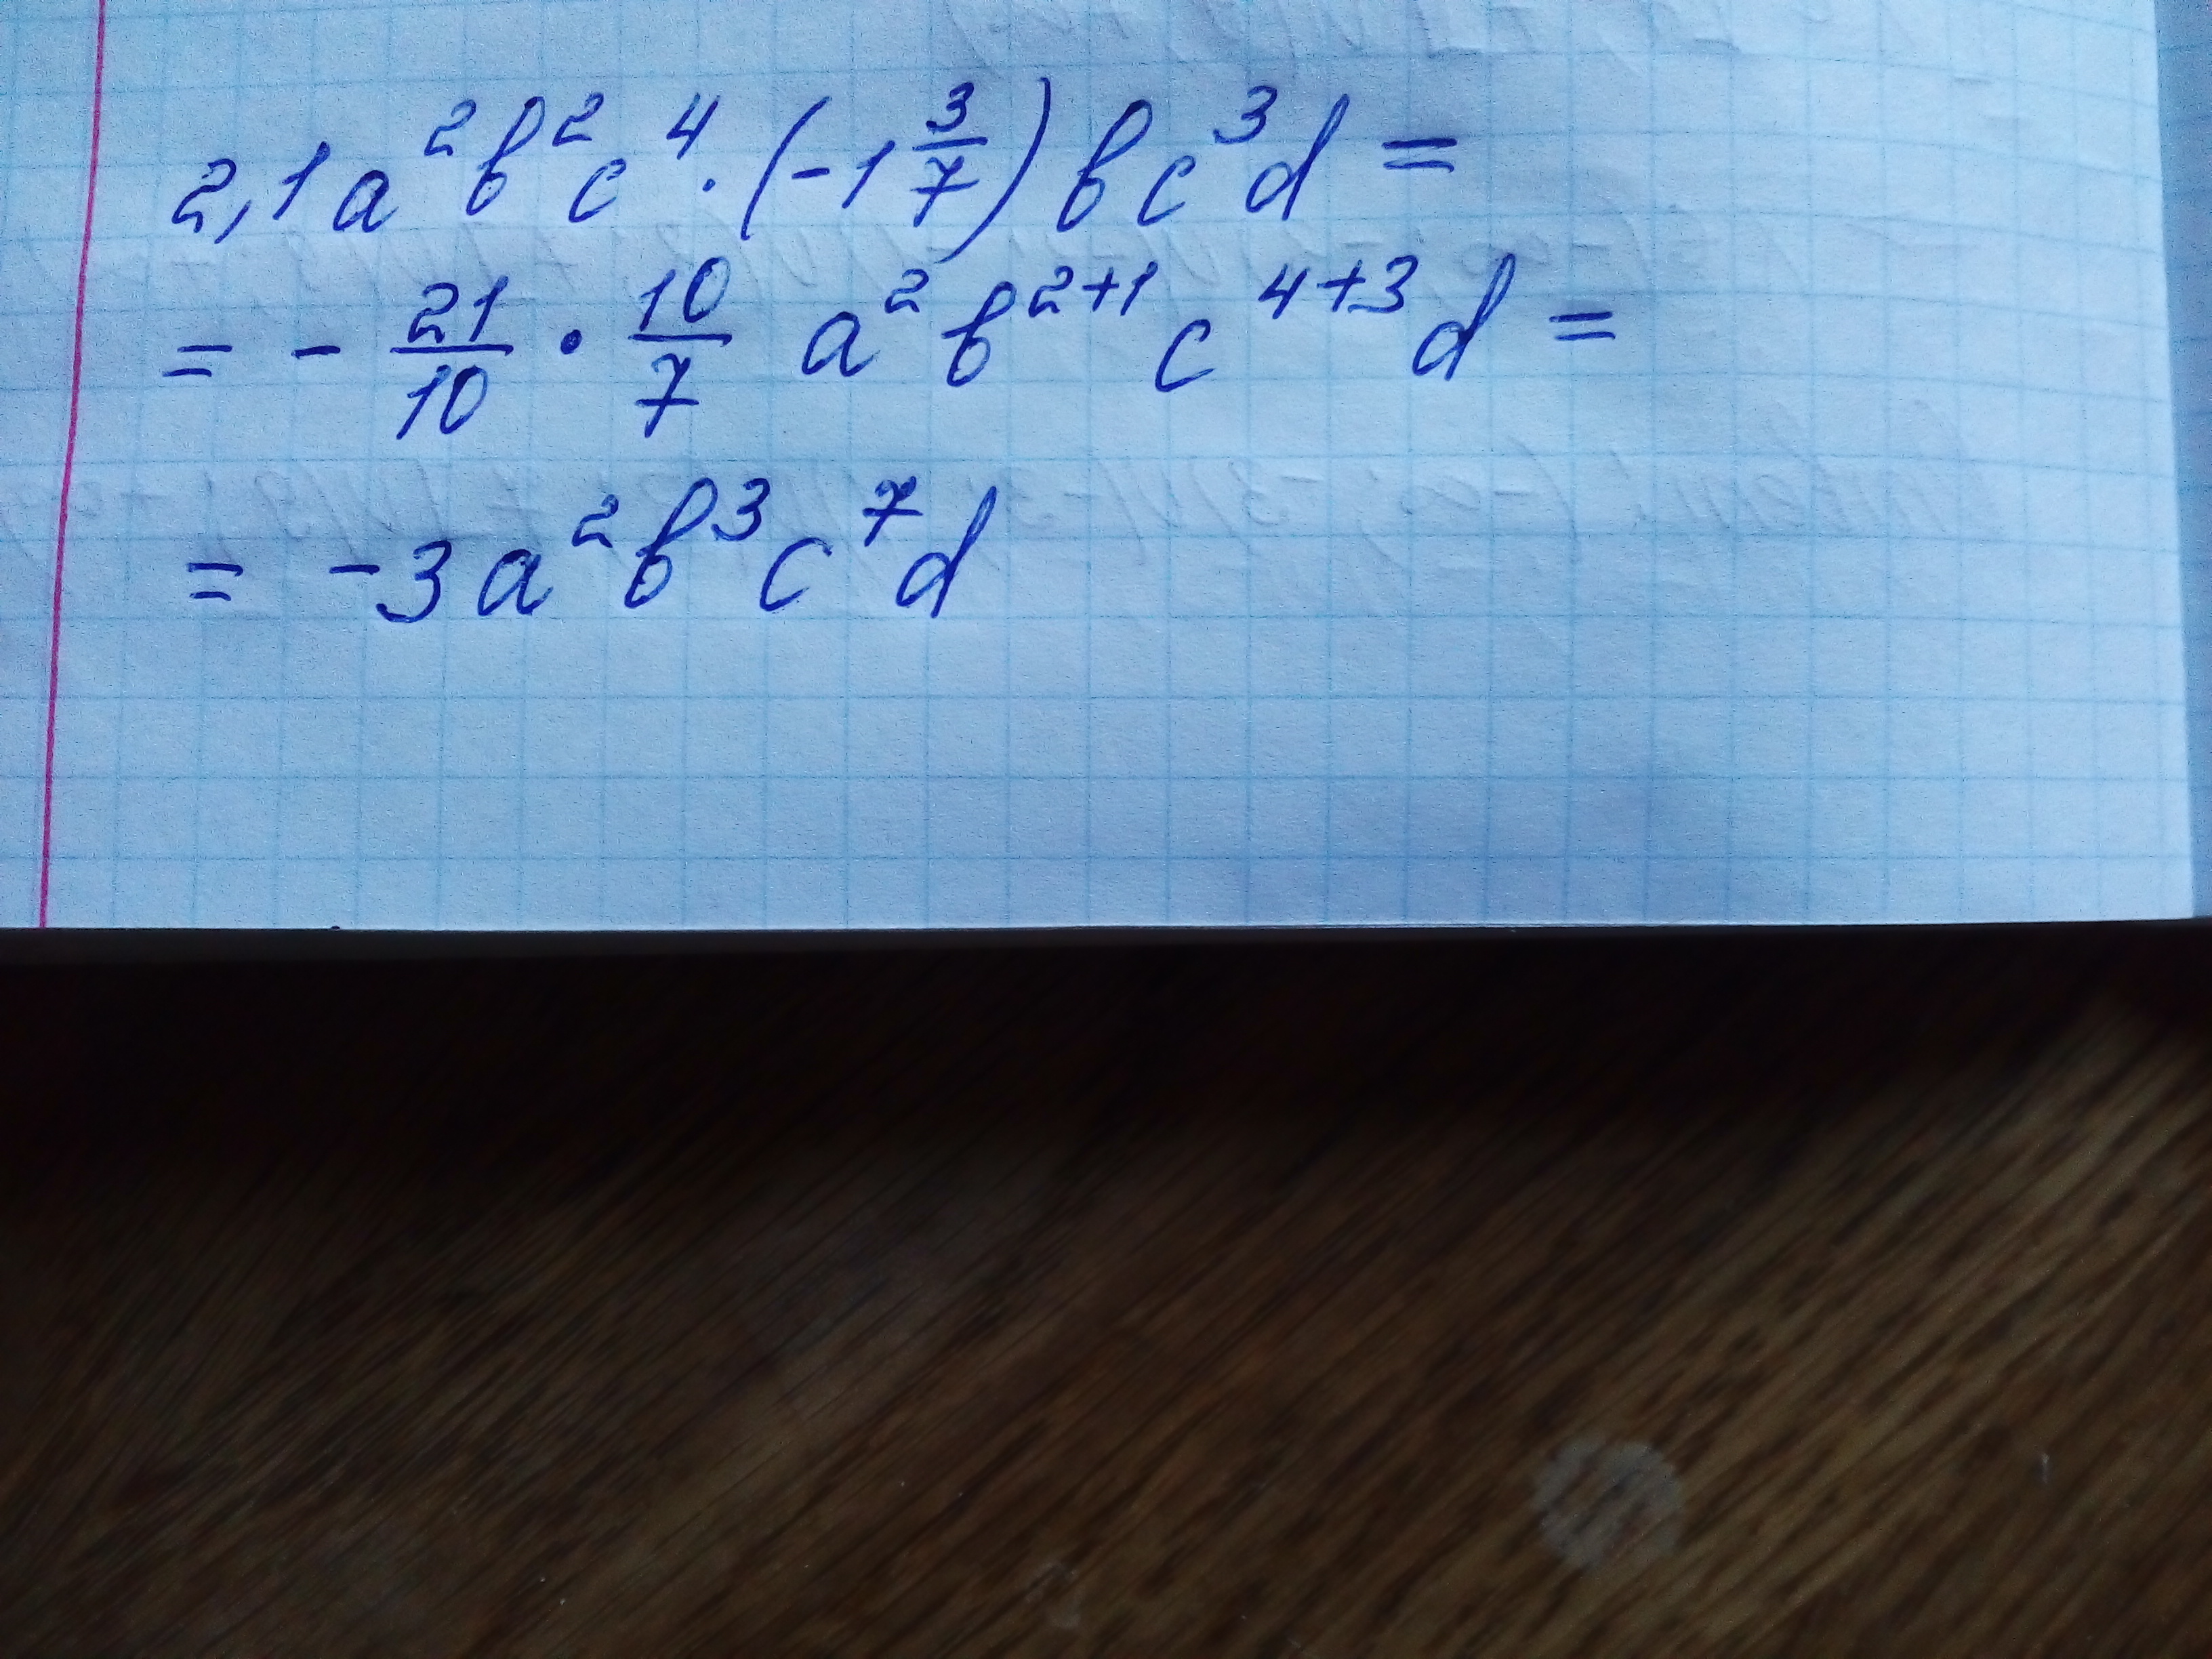 2,1a²b²c⁴ · (-1 3/7) bc³d =
= - 21/10 · 10/7 a²b²⁺¹c⁴⁺³d =
= -3a²b³c⁷d